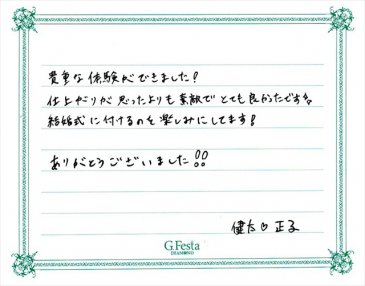 貴重な体験ができました!
仕上がりが思ったよりも素敵でとても良かったです。
結婚式に付けるのを楽しみにしてます!
ありがとうございました!!
健太♡正子
G.Festa
DIAMOND